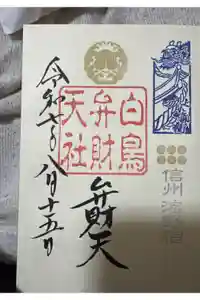 白鳥
弁財
天社
信州 海野宿
弁財天
令和七年八月十五日